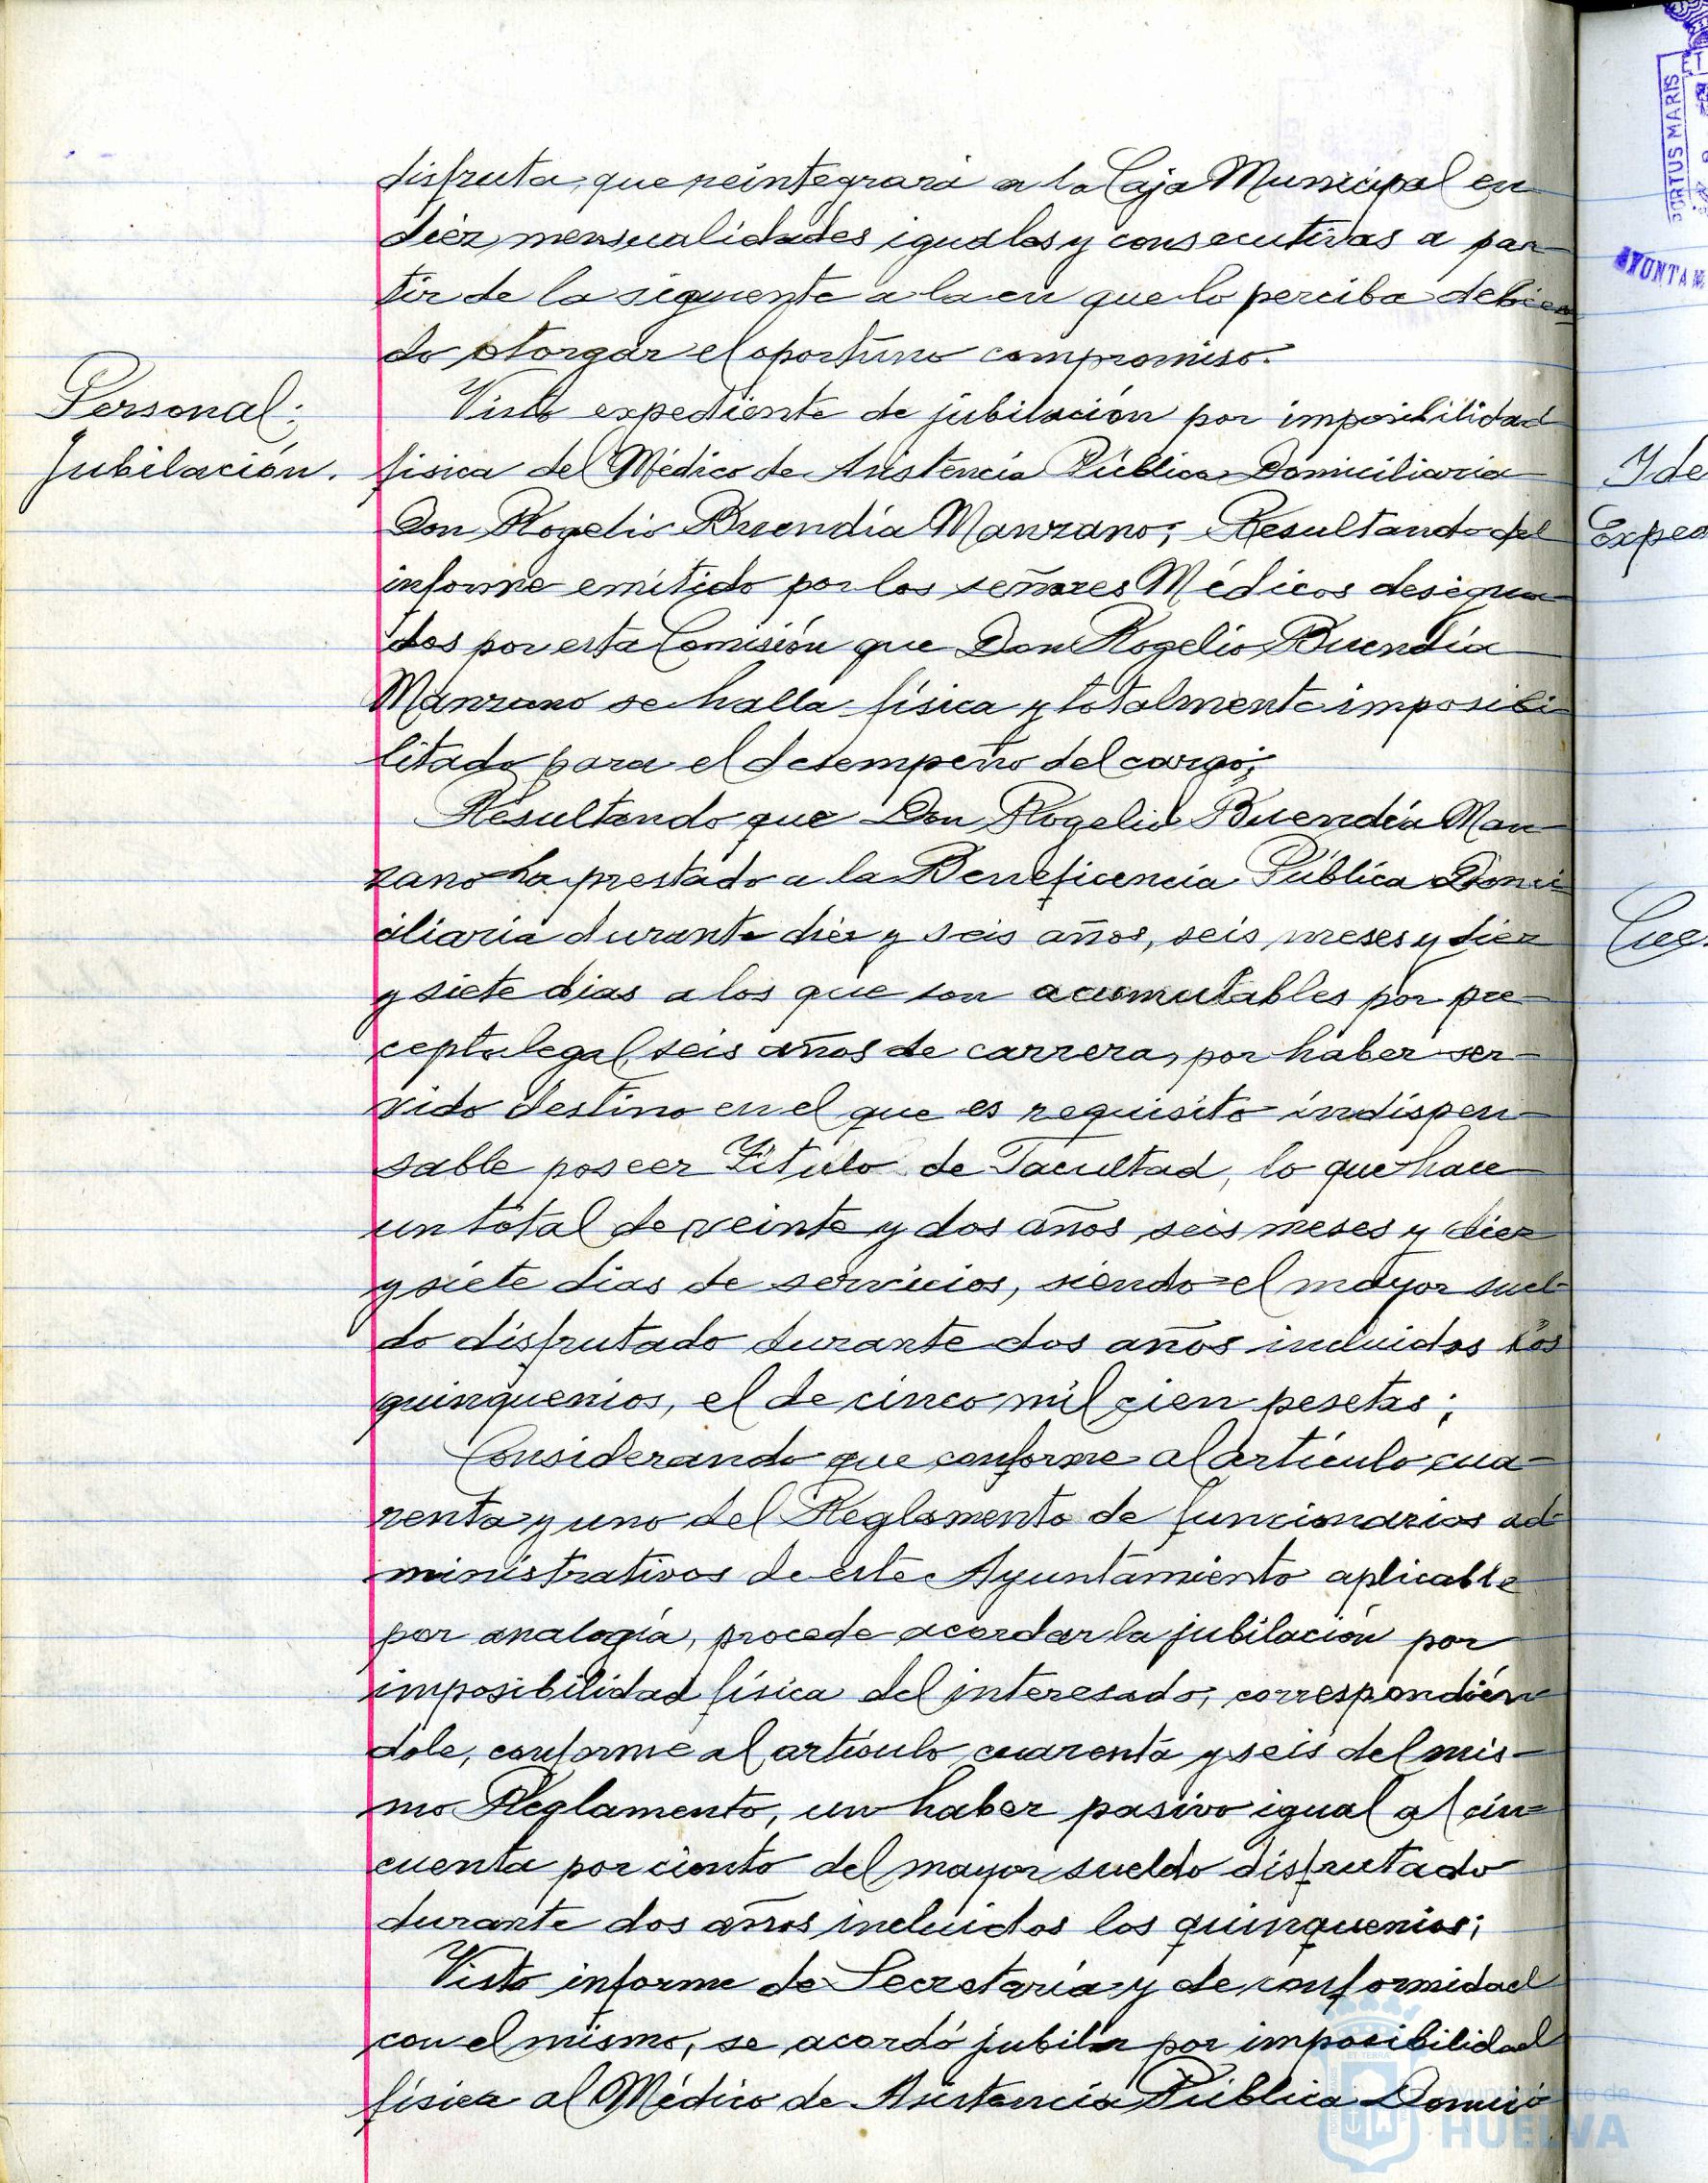 disfruta, que reintegrará a la Caja Municipal en
diez mensualidades iguales y consecutivas a par-
tir de la siguiente a la en que lo perciba debien
do otorgar el oportuno compromiso.
Personal:
Jubilación.
Visto expediente de jubilación por imposibilidad
física del Médico de Asistencia Pública Domiciliaria
Don Rogelio Buendía Manzano; Resultando del
informe emitido por los señores Médicos designa-
dos por esta Comisión que Don Rogelio Buendía
Manzano se halla física y totalmente imposibi-
litado para el desempeño del cargo;
Resultando que Don Rogelio Buendía Man-
zano ha prestado a la Beneficencia Pública Domi
ciliaria durante diez y seis años, seis meses y diez
y siete dias a los que son acumulables por pre-
cepto legal, seis años de carrera, por haber ser-
vido destino en el que es requisito indispen-
sable poseer Título de Facultad, lo que hace
un total de veinte y dos años seis meses y diez
y siete dias de servicios, siendo el mayor suel-
do disfrutado durante dos años incluidos los
quinquenios, el de cinco mil cien pesetas;
Considerando que conforme al artículo cua-
renta y uno del Reglamento de funcionarios ad-
ministrativos de este Ayuntamiento aplicable
por analogía, procede acordar la jubilación por
imposibilidad física del interesado, correspondién-
dole, conforme al artículo cuarenta y seis del mis-
mo Reglamento, un haber pasivo igual al cin-
cuenta por ciento del mayor sueldo disfrutado
durante dos años incluidos los quinquenios;
Visto informe de Secretaría y de conformidad
con el mismo, se acordó jubilar por imposibilidad
física al Médico de Asistencia Pública Domici
PORTUS MARIS
AYUNTAM
Ide
Exped
Ayuntamiento de
HUELVA